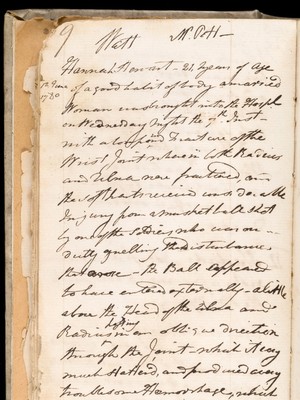 9 Watt Mr. Pott—
Hannah Stewart - 21 years of age
12 June
1780
of a good habit of body, a married
Woman was brought into the Hospl
on Wednesday Night the 7th Inst-
with a Compound Fracture of the
Wrist Joint wherein both Radius
and Ulna were fractured, on
the soft parts received considerable
Injury from a musket ball shot
by one of the soldiers, who was on
duty quelling the disturbances
that arose - the Ball appeared
to have entered externally - a little
above the Head of the Ulna and
Radius passing in an oblique direction
through the Joint - which it very
much shattered, and produced very
troublesome Hemorrhage, which